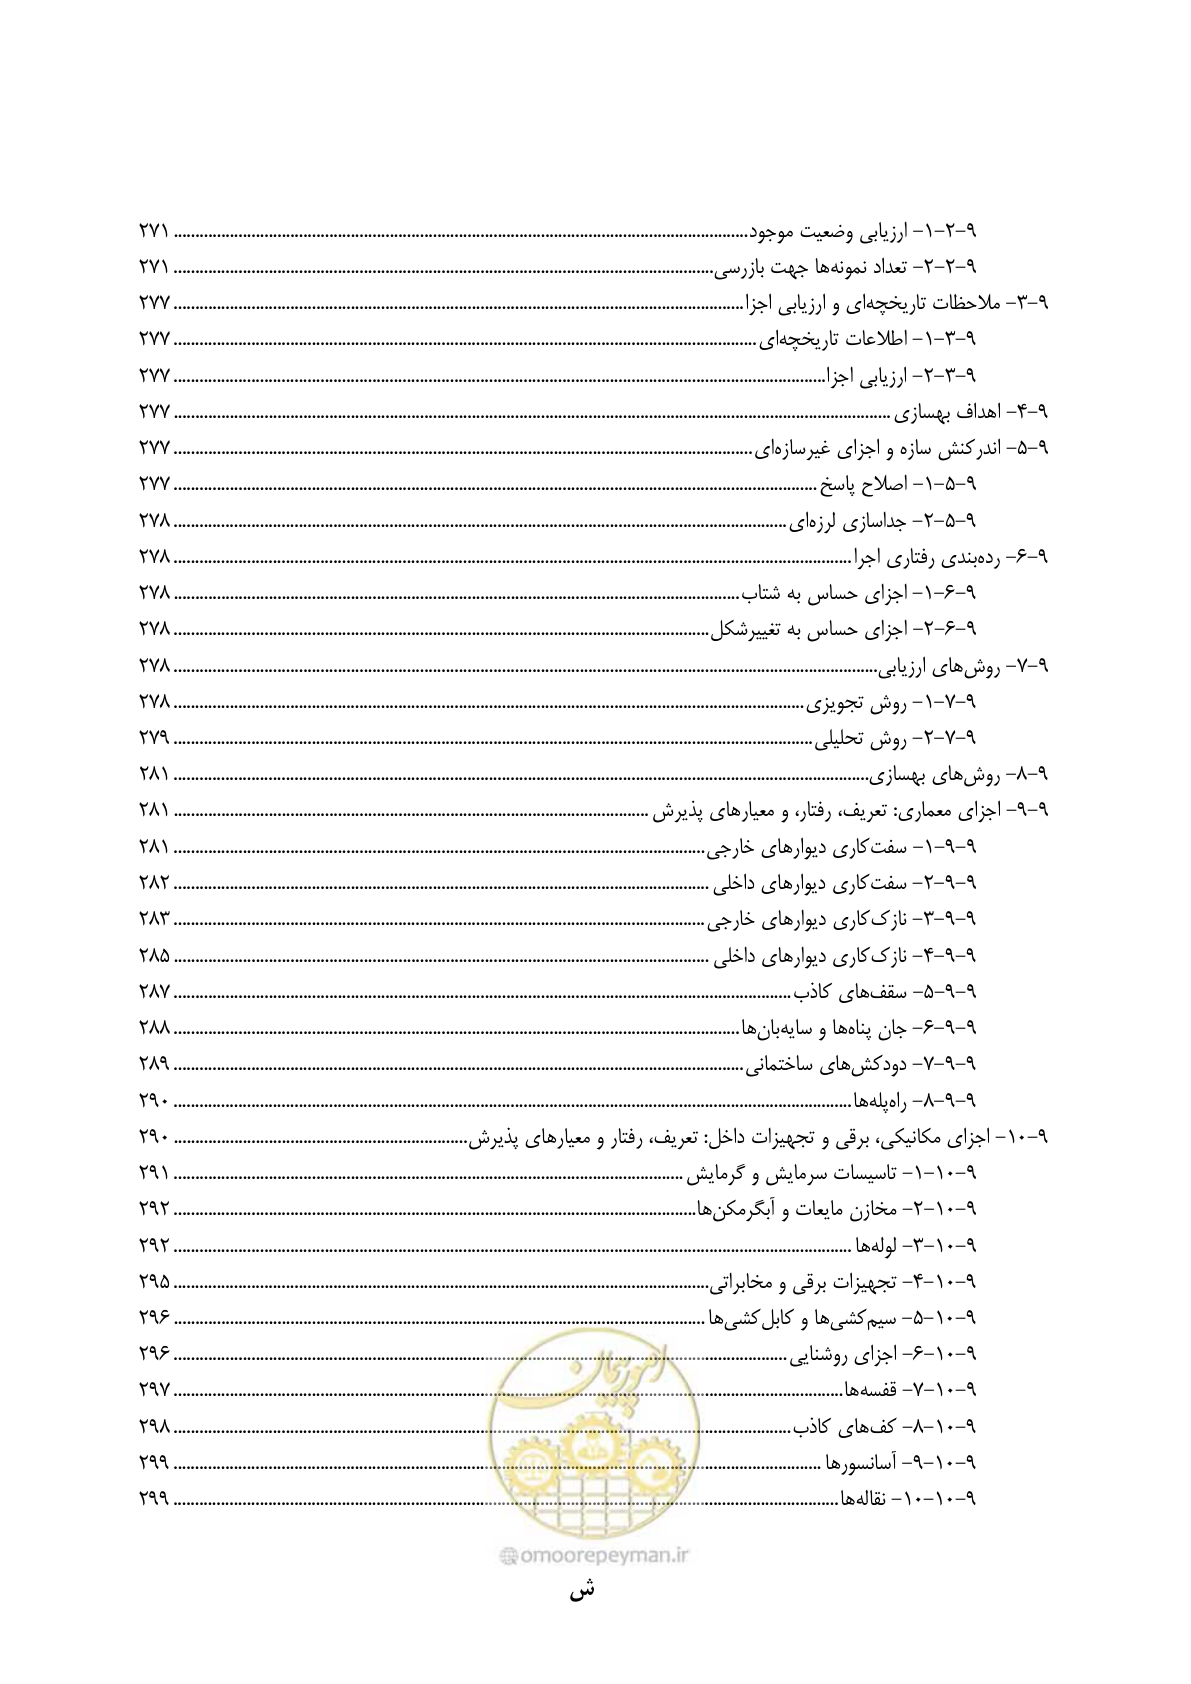 ۹-۲-۱- ارزیابی وضعیت موجود ........ ۲۷۱
۹-۲-۲- تعداد نمونه‌ها جهت بازرسی ........ ۲۷۱
۹-۳- ملاحظات تاریخچه‌ای و ارزیابی اجزا ........ ۲۷۷
۹-۳-۱- اطلاعات تاریخچه‌ای ........ ۲۷۷
۹-۳-۲- ارزیابی اجزا ........ ۲۷۷
۹-۴- اهداف بهسازی ........ ۲۷۷
۹-۵- اندرکنش سازه و اجزای غیرسازه‌ای ........ ۲۷۷
۹-۵-۱- اصلاح پاسخ ........ ۲۷۷
۹-۵-۲- جداسازی لرزه‌ای ........ ۲۷۸
۹-۶- رده‌بندی رفتاری اجرا ........ ۲۷۸
۹-۶-۱- اجزای حساس به شتاب ........ ۲۷۸
۹-۶-۲- اجزای حساس به تغییرشکل ........ ۲۷۸
۹-۷- روش‌های ارزیابی ........ ۲۷۸
۹-۷-۱- روش تجویزی ........ ۲۷۸
۹-۷-۲- روش تحلیلی ........ ۲۷۹
۹-۸- روش‌های بهسازی ........ ۲۸۱
۹-۹- اجزای معماری: تعریف، رفتار، و معیارهای پذیرش ........ ۲۸۱
۹-۹-۱- سفت‌کاری دیوارهای خارجی ........ ۲۸۱
۹-۹-۲- سفت‌کاری دیوارهای داخلی ........ ۲۸۲
۹-۹-۳- نازک‌کاری دیوارهای خارجی ........ ۲۸۳
۹-۹-۴- نازک‌کاری دیوارهای داخلی ........ ۲۸۵
۹-۹-۵- سقف‌های کاذب ........ ۲۸۷
۹-۹-۶- جان پناه‌ها و سایه‌بان‌ها ........ ۲۸۸
۹-۹-۷- دودکش‌های ساختمانی ........ ۲۸۹
۹-۹-۸- راه‌پله‌ها ........ ۲۹۰
۹-۱۰- اجزای مکانیکی، برقی و تجهیزات داخل: تعریف، رفتار و معیارهای پذیرش ........ ۲۹۰
۹-۱۰-۱- تاسیسات سرمایش و گرمایش ........ ۲۹۱
۹-۱۰-۲- مخازن مایعات و آبگرمکن‌ها ........ ۲۹۲
۹-۱۰-۳- لوله‌ها ........ ۲۹۲
۹-۱۰-۴- تجهیزات برقی و مخابراتی ........ ۲۹۵
۹-۱۰-۵- سیم‌کشی‌ها و کابل‌کشی‌ها ........ ۲۹۶
۹-۱۰-۶- اجزای روشنایی ........ ۲۹۶
۹-۱۰-۷- قفسه‌ها ........ ۲۹۷
۹-۱۰-۸- کف‌های کاذب ........ ۲۹۸
۹-۱۰-۹- آسانسورها ........ ۲۹۹
۹-۱۰-۱۰- نقاله‌ها ........ ۲۹۹
امور پیمان
@omoorepeyman.ir
ش